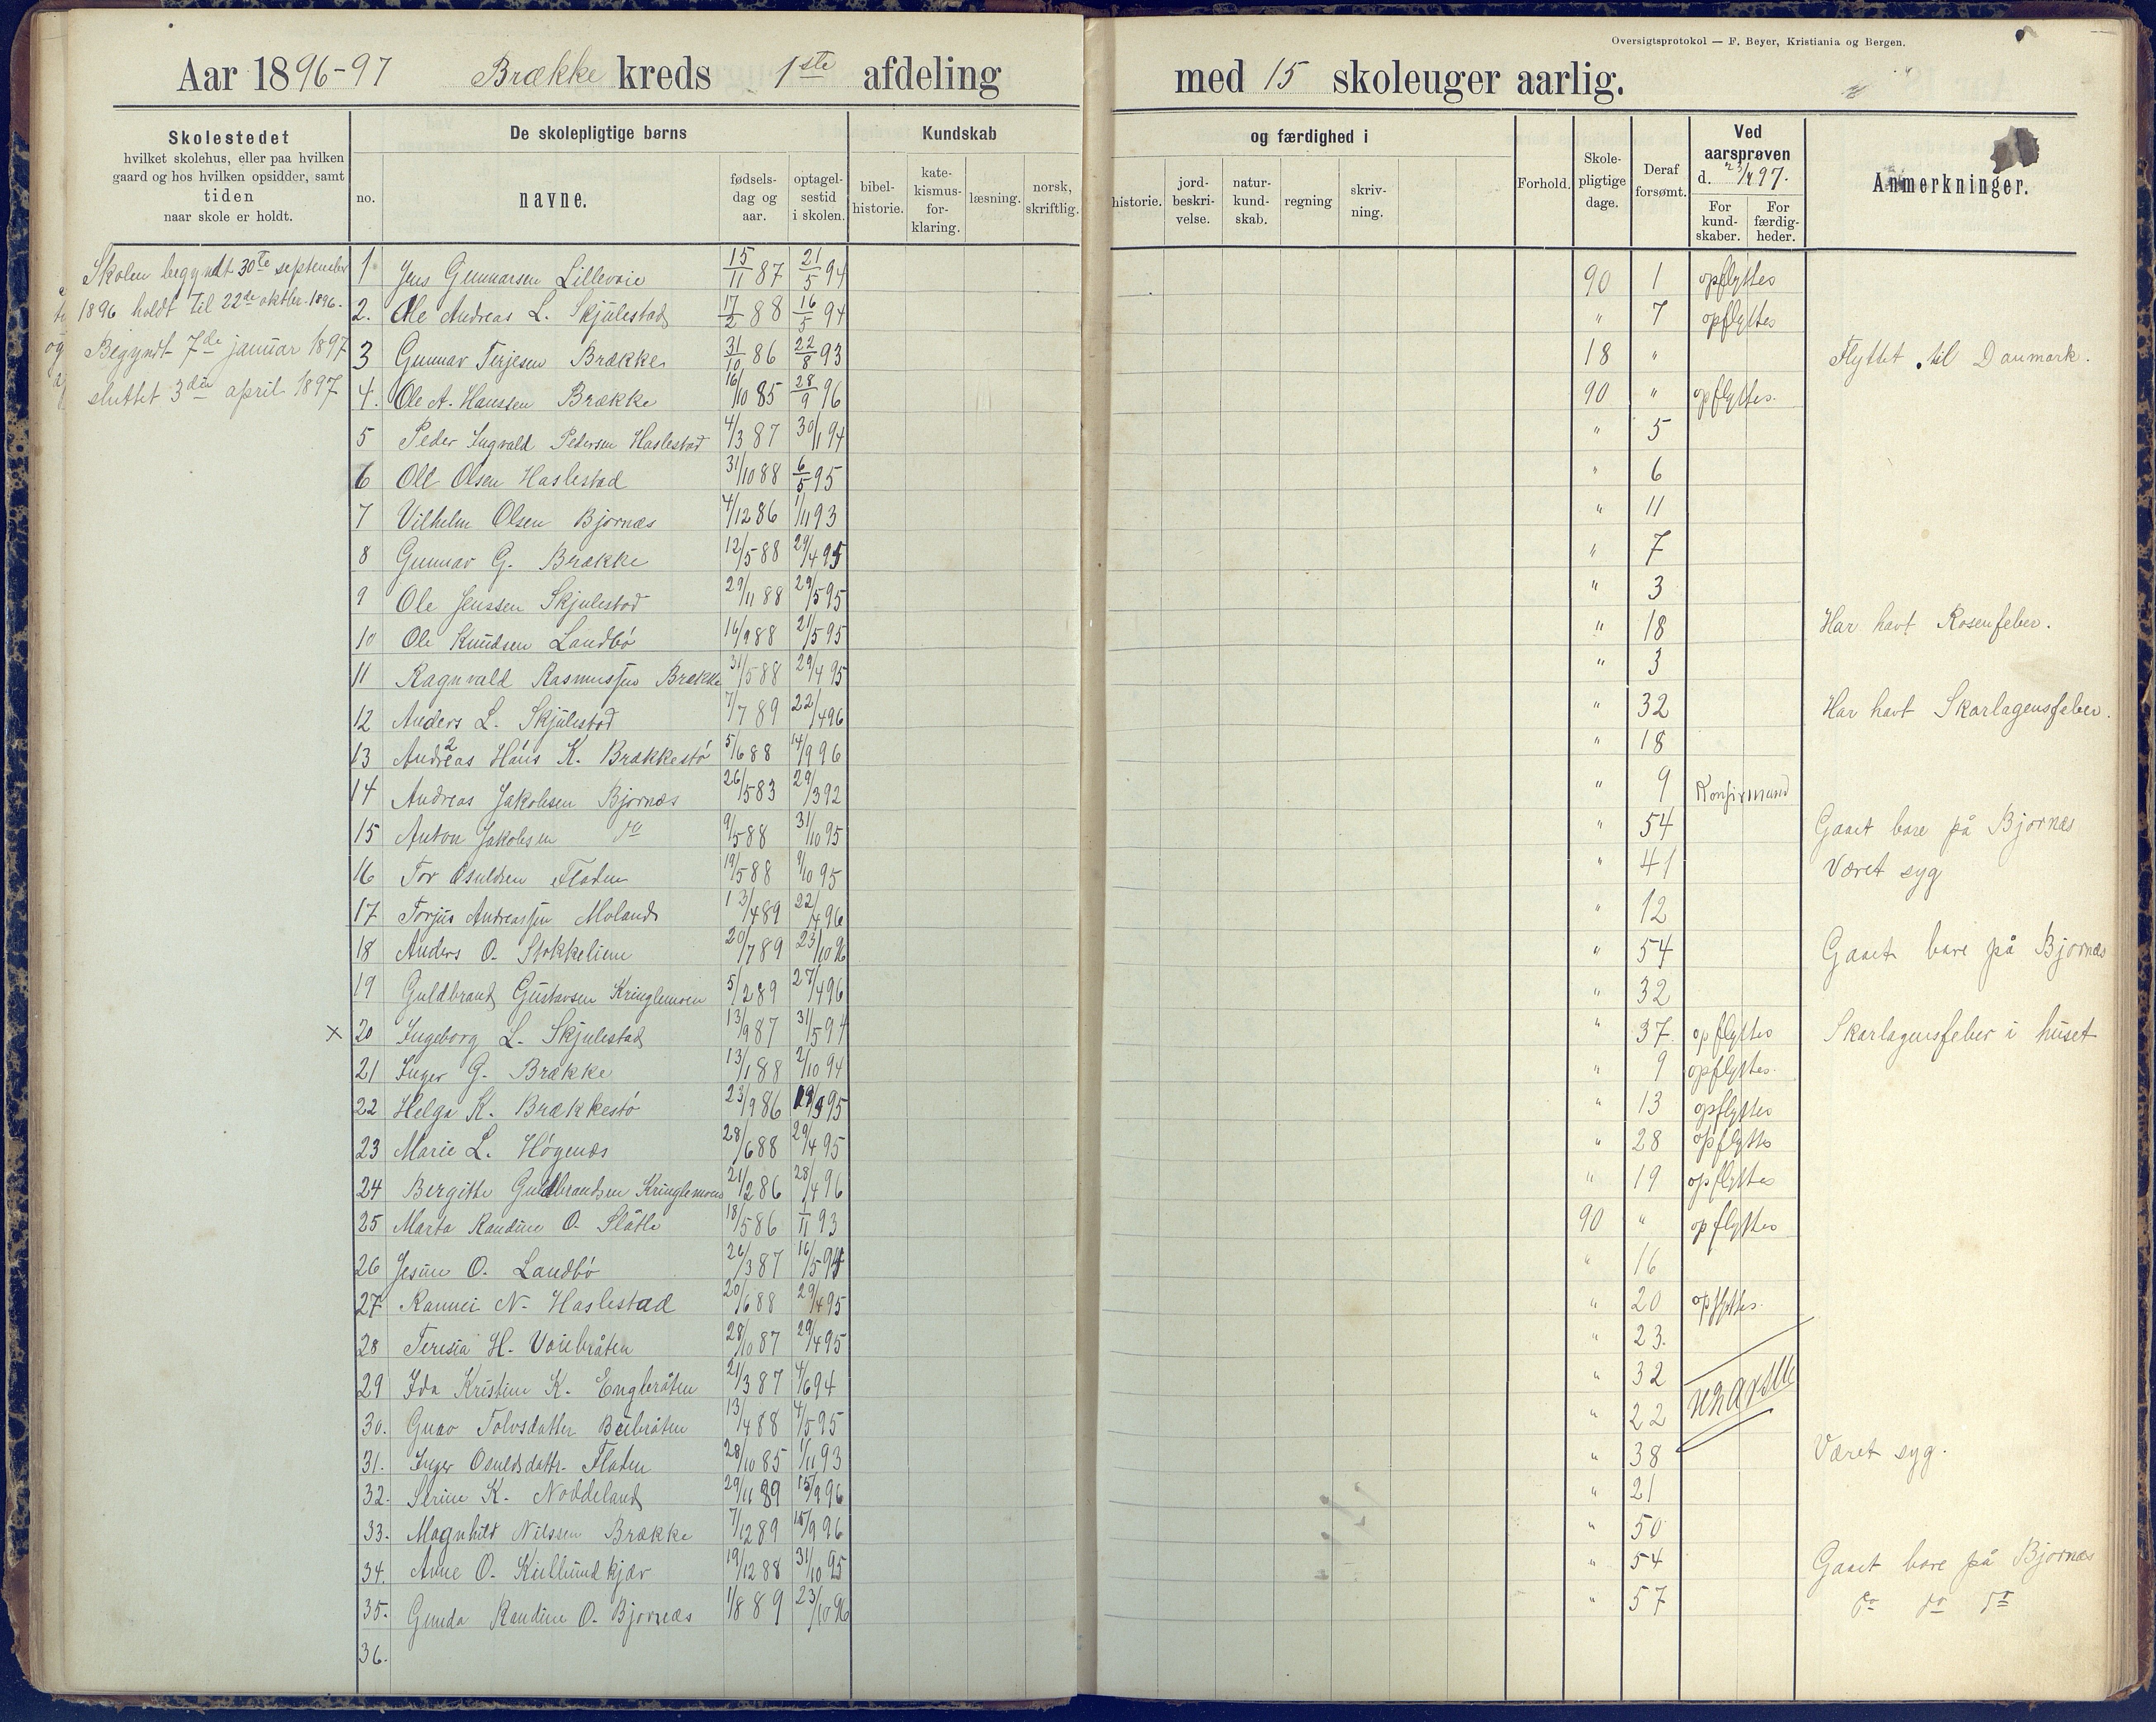 Oversigtsprotokol — F. Beyer, Kristiania og Bergen.
Aar 1896-97 Brække kreds 1ste afdeling med 15 skoleuger aarlig.
Skolestedet
hvilket skolehus, eller paa hvilken
gaard og hos hvilken opsidder, samt
tiden
naar skole er holdt.
De skolepligtige børns
no.
navne.
fødsels-
dag og
aar.
optagel-
sestid
i skolen.
Kundskab og færdighed i
bibel-
historie.
kate-
kismus-
for-
klaring.
læsning.
norsk,
skriftlig.
historie.
jord-
beskri-
velse.
natur-
kund-
skab.
regning
skriv-
ning.
Forhold.
Skole-
pligtige
dage.
Deraf
forsømt.
Ved
aarsprøven
d. 23/4 97.
For
kund-
skaber.
For
færdig-
heder.
Anmerkninger.
Skolen begyndt 30te september
1896 holdt til 22de oktbr. 1896.
Begyndt 7de januar 1897
sluttet 3die april 1897
1 Jens Gunnarsen Lillevoie 15/11 87 21/5 94 90 1 opflyttes
2. Ole Andreas L. Skjulestad 17/2 88 16/5 94 " 7 opflyttes
3 Gunnar Terjesen Brække 31/10 86 22/8 93 18 " Flyttet til Danmark.
4. Ole A. Hanssen Brække 16/10 85 28/9 96 90 " opflyttes.
5 Peder Ingvald Pedersen Haslestad 4/3 87 30/1 94 " 5
6 Ole Olsen Haslestad 31/10 88 6/5 95 " 6
7 Vilhelm Olsen Bjornæs 4/12 86 1/11 93 " 11
8 Gunnar G. Brække 12/5 88 29/4 95 " 7
9 Ole Jenssen Skjulestad 29/11 88 29/5 95 " 3
10 Ole Knudsen Landbö 16/9 88 21/5 95 " 18 Har havt Rosenfeber.
11 Ragnvald Rasmussen Brække 31/5 88 29/4 95 " 3
12 Anders L. Skjulestad 7/7 89 22/4 96 " 32 Har havt Skarlagensfeber.
13 Andreas Hans K. Brækkestö 5/6 88 14/9 96 " 18
14 Andreas Jakobsen Bjornæs 26/5 83 29/3 92 " 9 Konfirmand
15 Anton Jakobsen do 9/5 88 31/10 95 " 54 Gaaet bare på Bjornæs
16 Tor Osuldsen Fladen 19/5 88 9/10 95 " 41 Været syg
17 Torjus Andreassen Moland 13/4 89 22/4 96 " 12
18 Anders O. Stokkelien 20/7 89 23/10 96 " 54 Gaaet bare på Bjornæs
19 Guldbrand Gustavsen Kringlemoen 5/2 89 27/4 96 " 32
x 20 Ingeborg L. Skjulestad 13/9 87 31/5 94 " 37. opflyttes Skarlagensfeber i huset
21 Inger G. Brække 13/1 88 2/10 94 " 9 opflyttes.
22 Helga K. Brækkestö 23/9 86 95 " 13 opflyttes
23 Marie L. Högenæs 28/6 88 29/4 95 " 28 opflyttes
24 Bergitte Guldbrandsen Kringlemoen 21/2 86 28/4 96 " 19 opflyttes
25 Marta Randine O. Slåtte 18/5 86 1/11 93 90 " opflyttes
26 Jesine O. Landbö 26/3 87 16/5 94 " 16
27 Rannei N. Haslestad 20/6 88 29/4 95 " 20 opflyttes.
28 Teresia H. Voiebråten 28/10 87 29/4 95 " 23.
29 Ida Kristine K. Englebråten 21/3 87 4/6 94 " 32
30. Guro Tolvsdatter 13/4 88 4/5 95 " 22
31. Inger Osuldsdattr. Fladen 28/10 85 1/11 93 " 38 Været syg.
32. Serine K. Noddeland 29/11 89 15/9 96 " 21
33. Magnhild Nilssen Brække 7/12 89 15/9 96 " 50
34. Anne O. 19/12 88 31/10 95 " 54 Gaaet bare på Bjornæs
35. Gunda Randine O. Bjornæs 1/8 89 23/10 96 " 57 do do do
36.